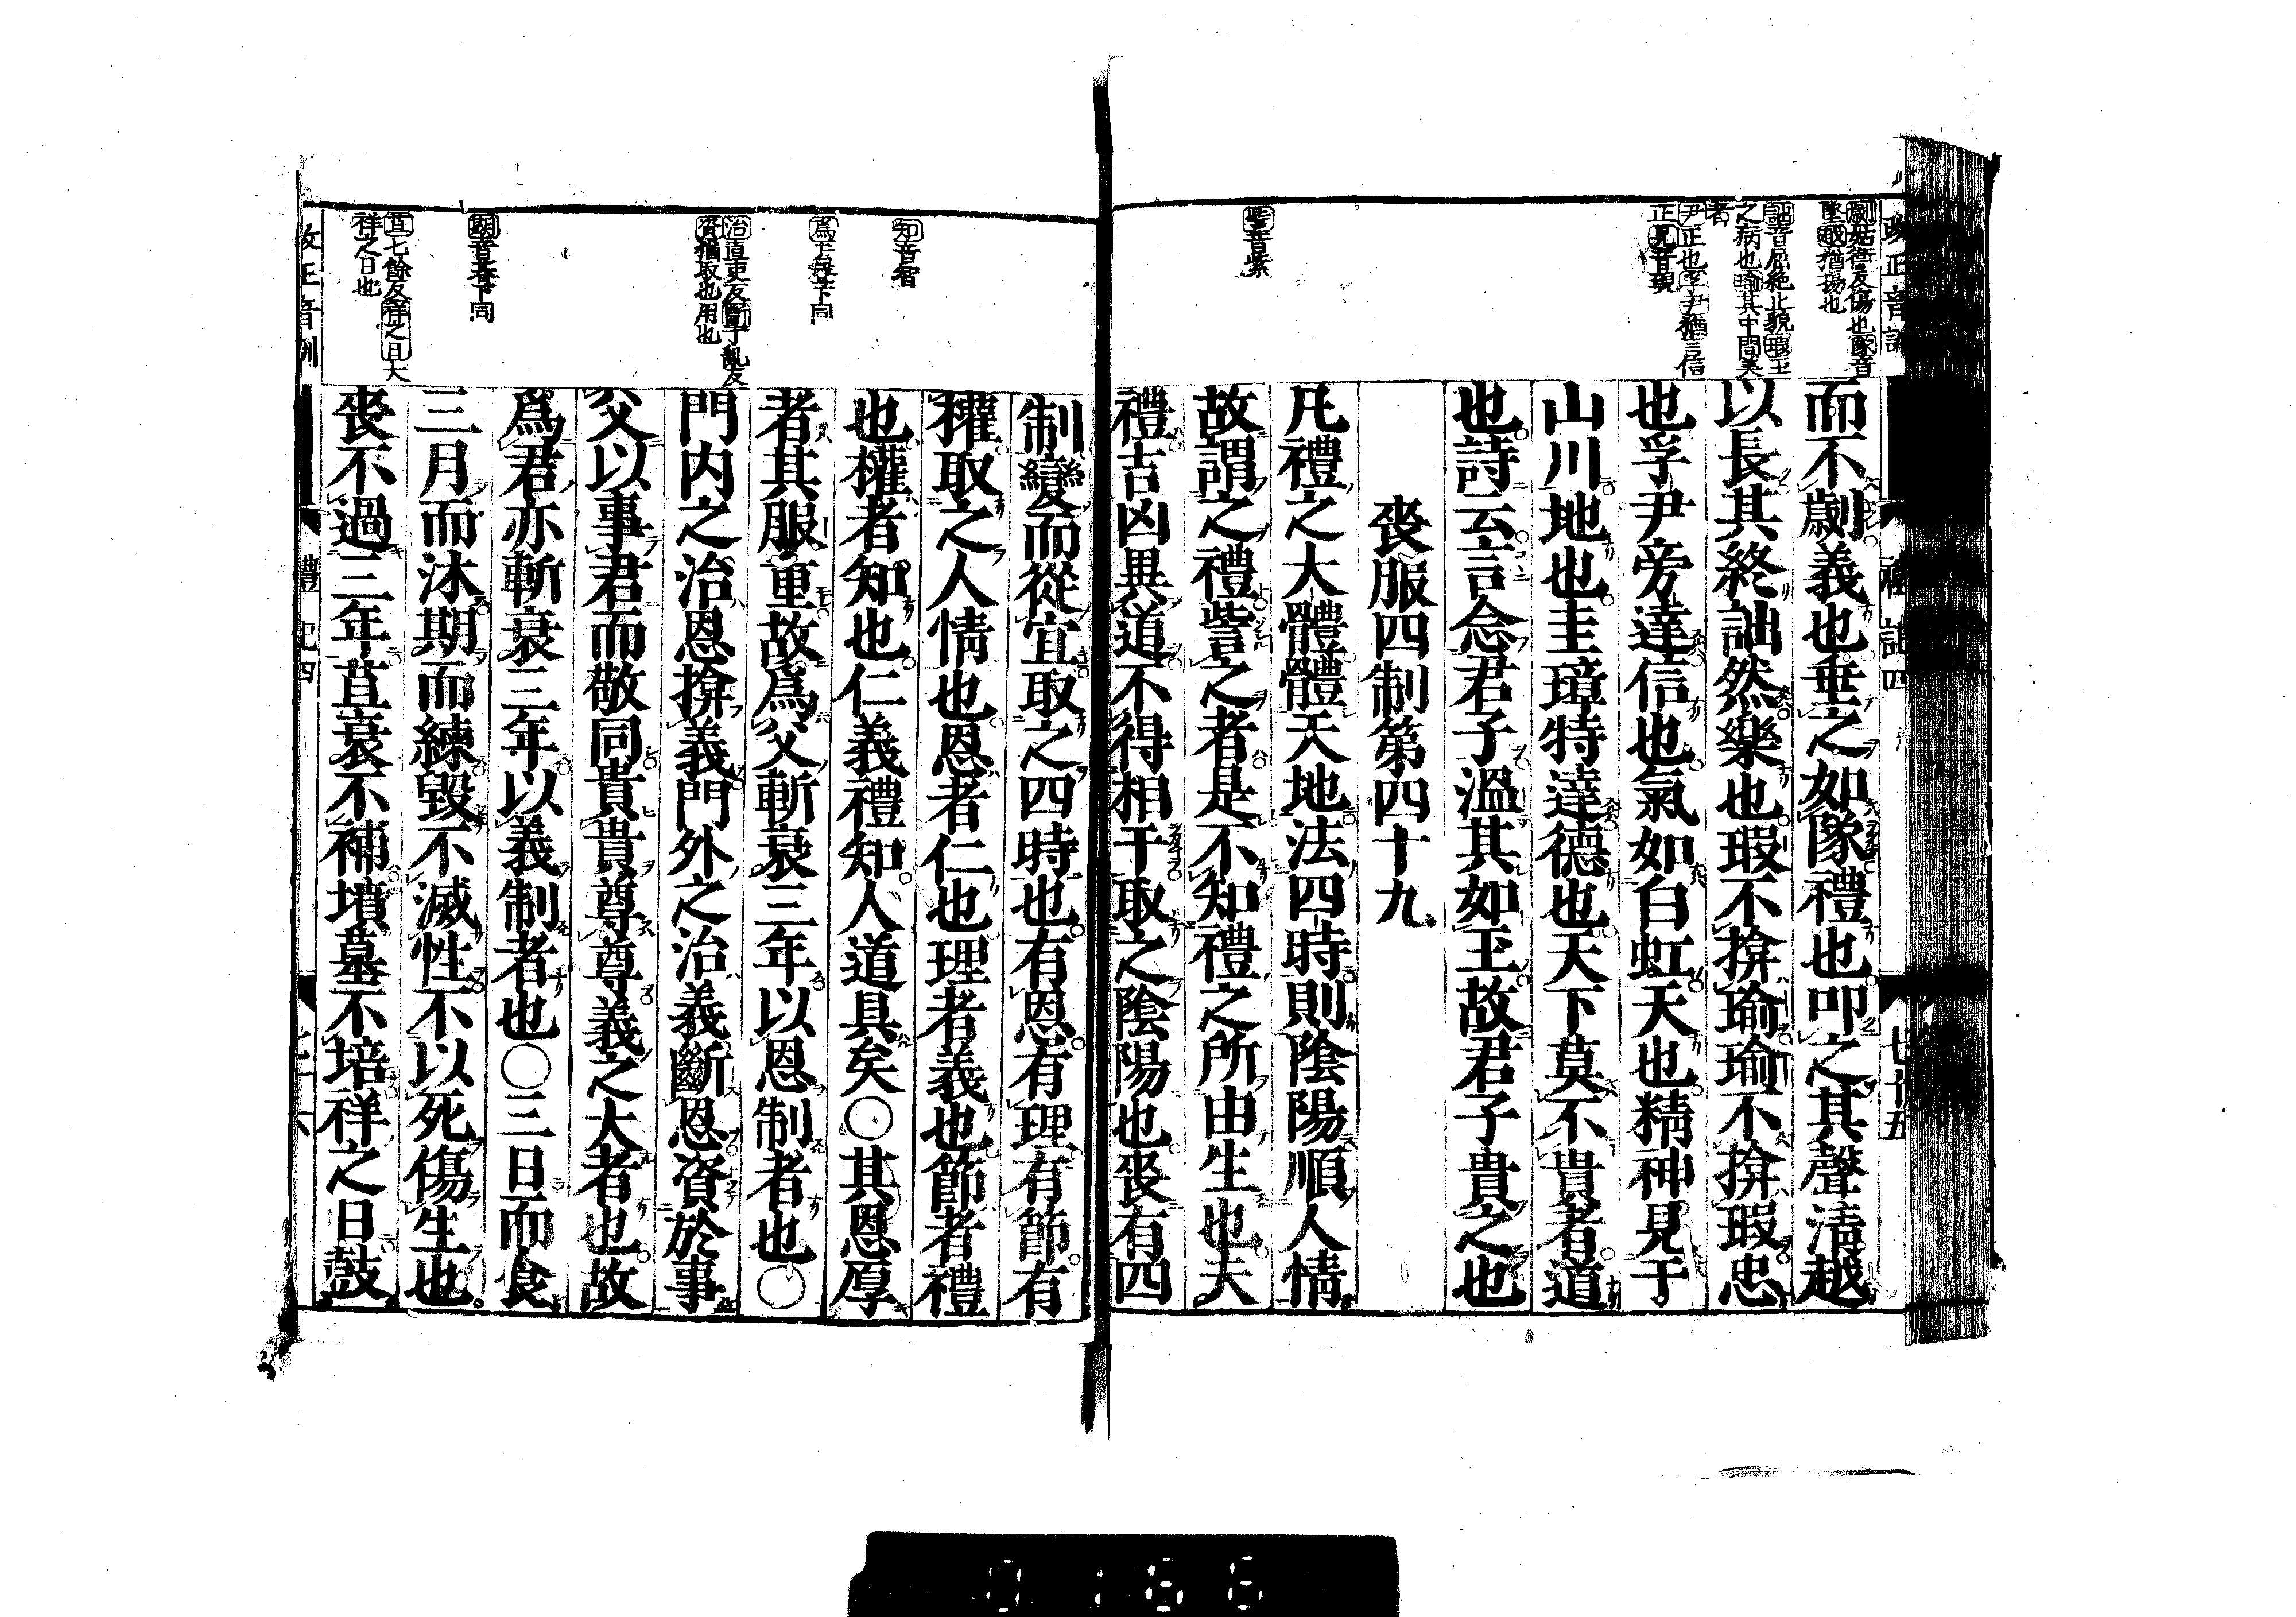 改正音訓
禮記四
七十五
劌姑衛反傷也隊音
墜越猶揚也
詘音屈絶止貌瑕玉
之病也瑜其中間美
者
尹正也孚尹猶言信
正見音現
訾音紫
而不劌義也垂之如隊禮也叩之其聲淸越
以長其終詘然樂也瑕不揜瑜瑜不揜瑕忠
也孚尹旁達信也氣如白虹天也精神見于
山川地也圭璋特達德也天下莫不貴者道
也詩云言念君子溫其如玉故君子貴之也
喪服四制第四十九
凡禮之大體體天地法四時則陰陽順人情
故謂之禮訾之者是不知禮之所由生也夫
禮吉凶異道不得相干取之陰陽也喪有四
知音智
爲去聲下同
治直吏反斷丁亂反
資猶取也用也
期音朞下同
苴七餘反祥之日大
祥之日也
制變而從宜取之四時也有恩有理有節有
權取之人情也恩者仁也理者義也節者禮
也權者知也仁義禮知人道具矣○其恩厚
者其服重故爲父斬衰三年以恩制者也○
門内之治恩揜義門外之治義斷恩資於事
父以事君而敬同貴貴尊尊義之大者也故
爲君亦斬衰三年以義制者也○三日而食
三月而沐期而練毀不滅性不以死傷生也
喪不過三年苴衰不補墳墓不培祥之日鼓
改正音訓
禮記四
0186